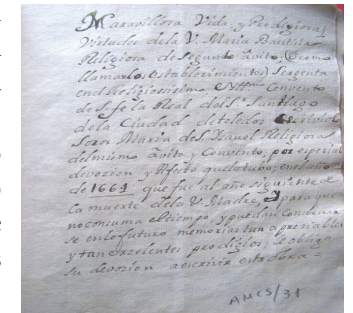 Maravillosa Vida, y Prodigiosas
Virtudes de la V. Maria Bautista
Religiosa de segundo avito, (o como
llaman los establecimientos) Sargenta
en el Religiosissimo Convento
de S. fe la Real del S. Santiago
de la Ciudad de toledo,
Soro Maria de S. Religiosa
del mismo avito, y Convento, por especial
devozion, y Afecto que la tuvo; en el año
de 1664 que fue al año siguiente de
la muerte de la V. Madre, para que
no consuma el tiempo, y puedan
se en lo futuro memorias tan apreciables
y tan excelentes prodigios, le obligo
su devozion a escrivir esta obra =
AMCS/31